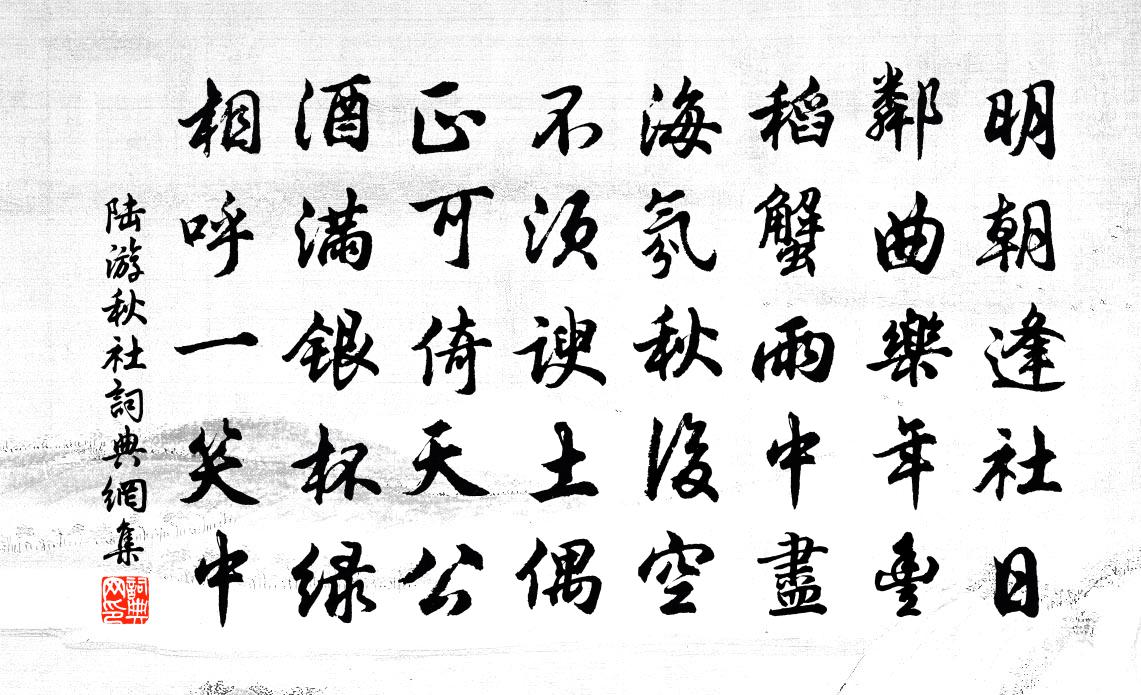 明朝逢社日
鄰曲樂年豊
稻蟹雨中盡
海氛秋後空
不須諛土偶
正可倚天公
酒滿銀杯綠
相呼一笑中
陆游秋社詞典網集
詞典网印